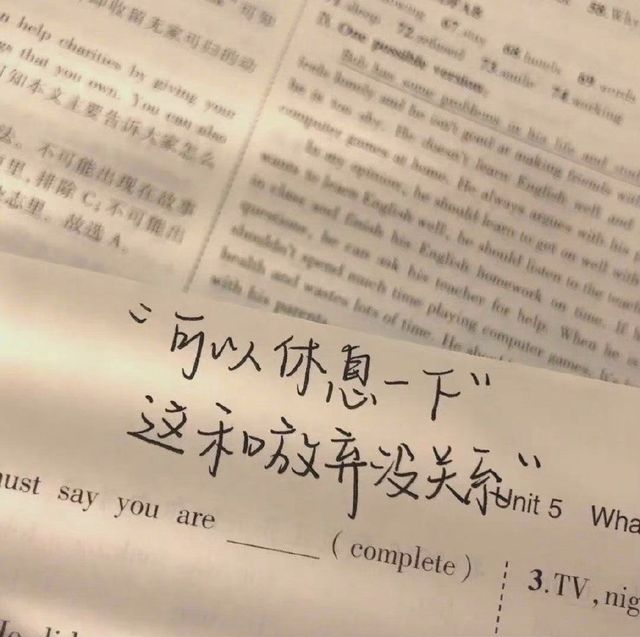 即收留无家可归的动
n help charities by giving your
gs that you own. You can also
可知本文主要告诉大家怎么
法。不可能出现在故事
里,排除 C;不可能出
志里。故选 A。
67. stay 68. hands 69. words
72. refused 73. smile 74. working
One possible version:
Bob has some problems in his life and stud
feels lonely and he isn't good at making friends with
he is too shy. He doesn't learn English well and
computer games at home. He always argues with his p
In my opinion, he should learn to get on well with
wants to learn English well, he should listen to the teach
in class and finish his English homework on time. If h
questions, he can ask his teacher for help. When he is
shouldn't spend much time playing computer games. It's
health and wastes lots of time. He sho
with his parents.
"可以休息一下"
这和放弃没关系"
Unit 5 Wha
must say you are ______ (complete)
3.TV, nig